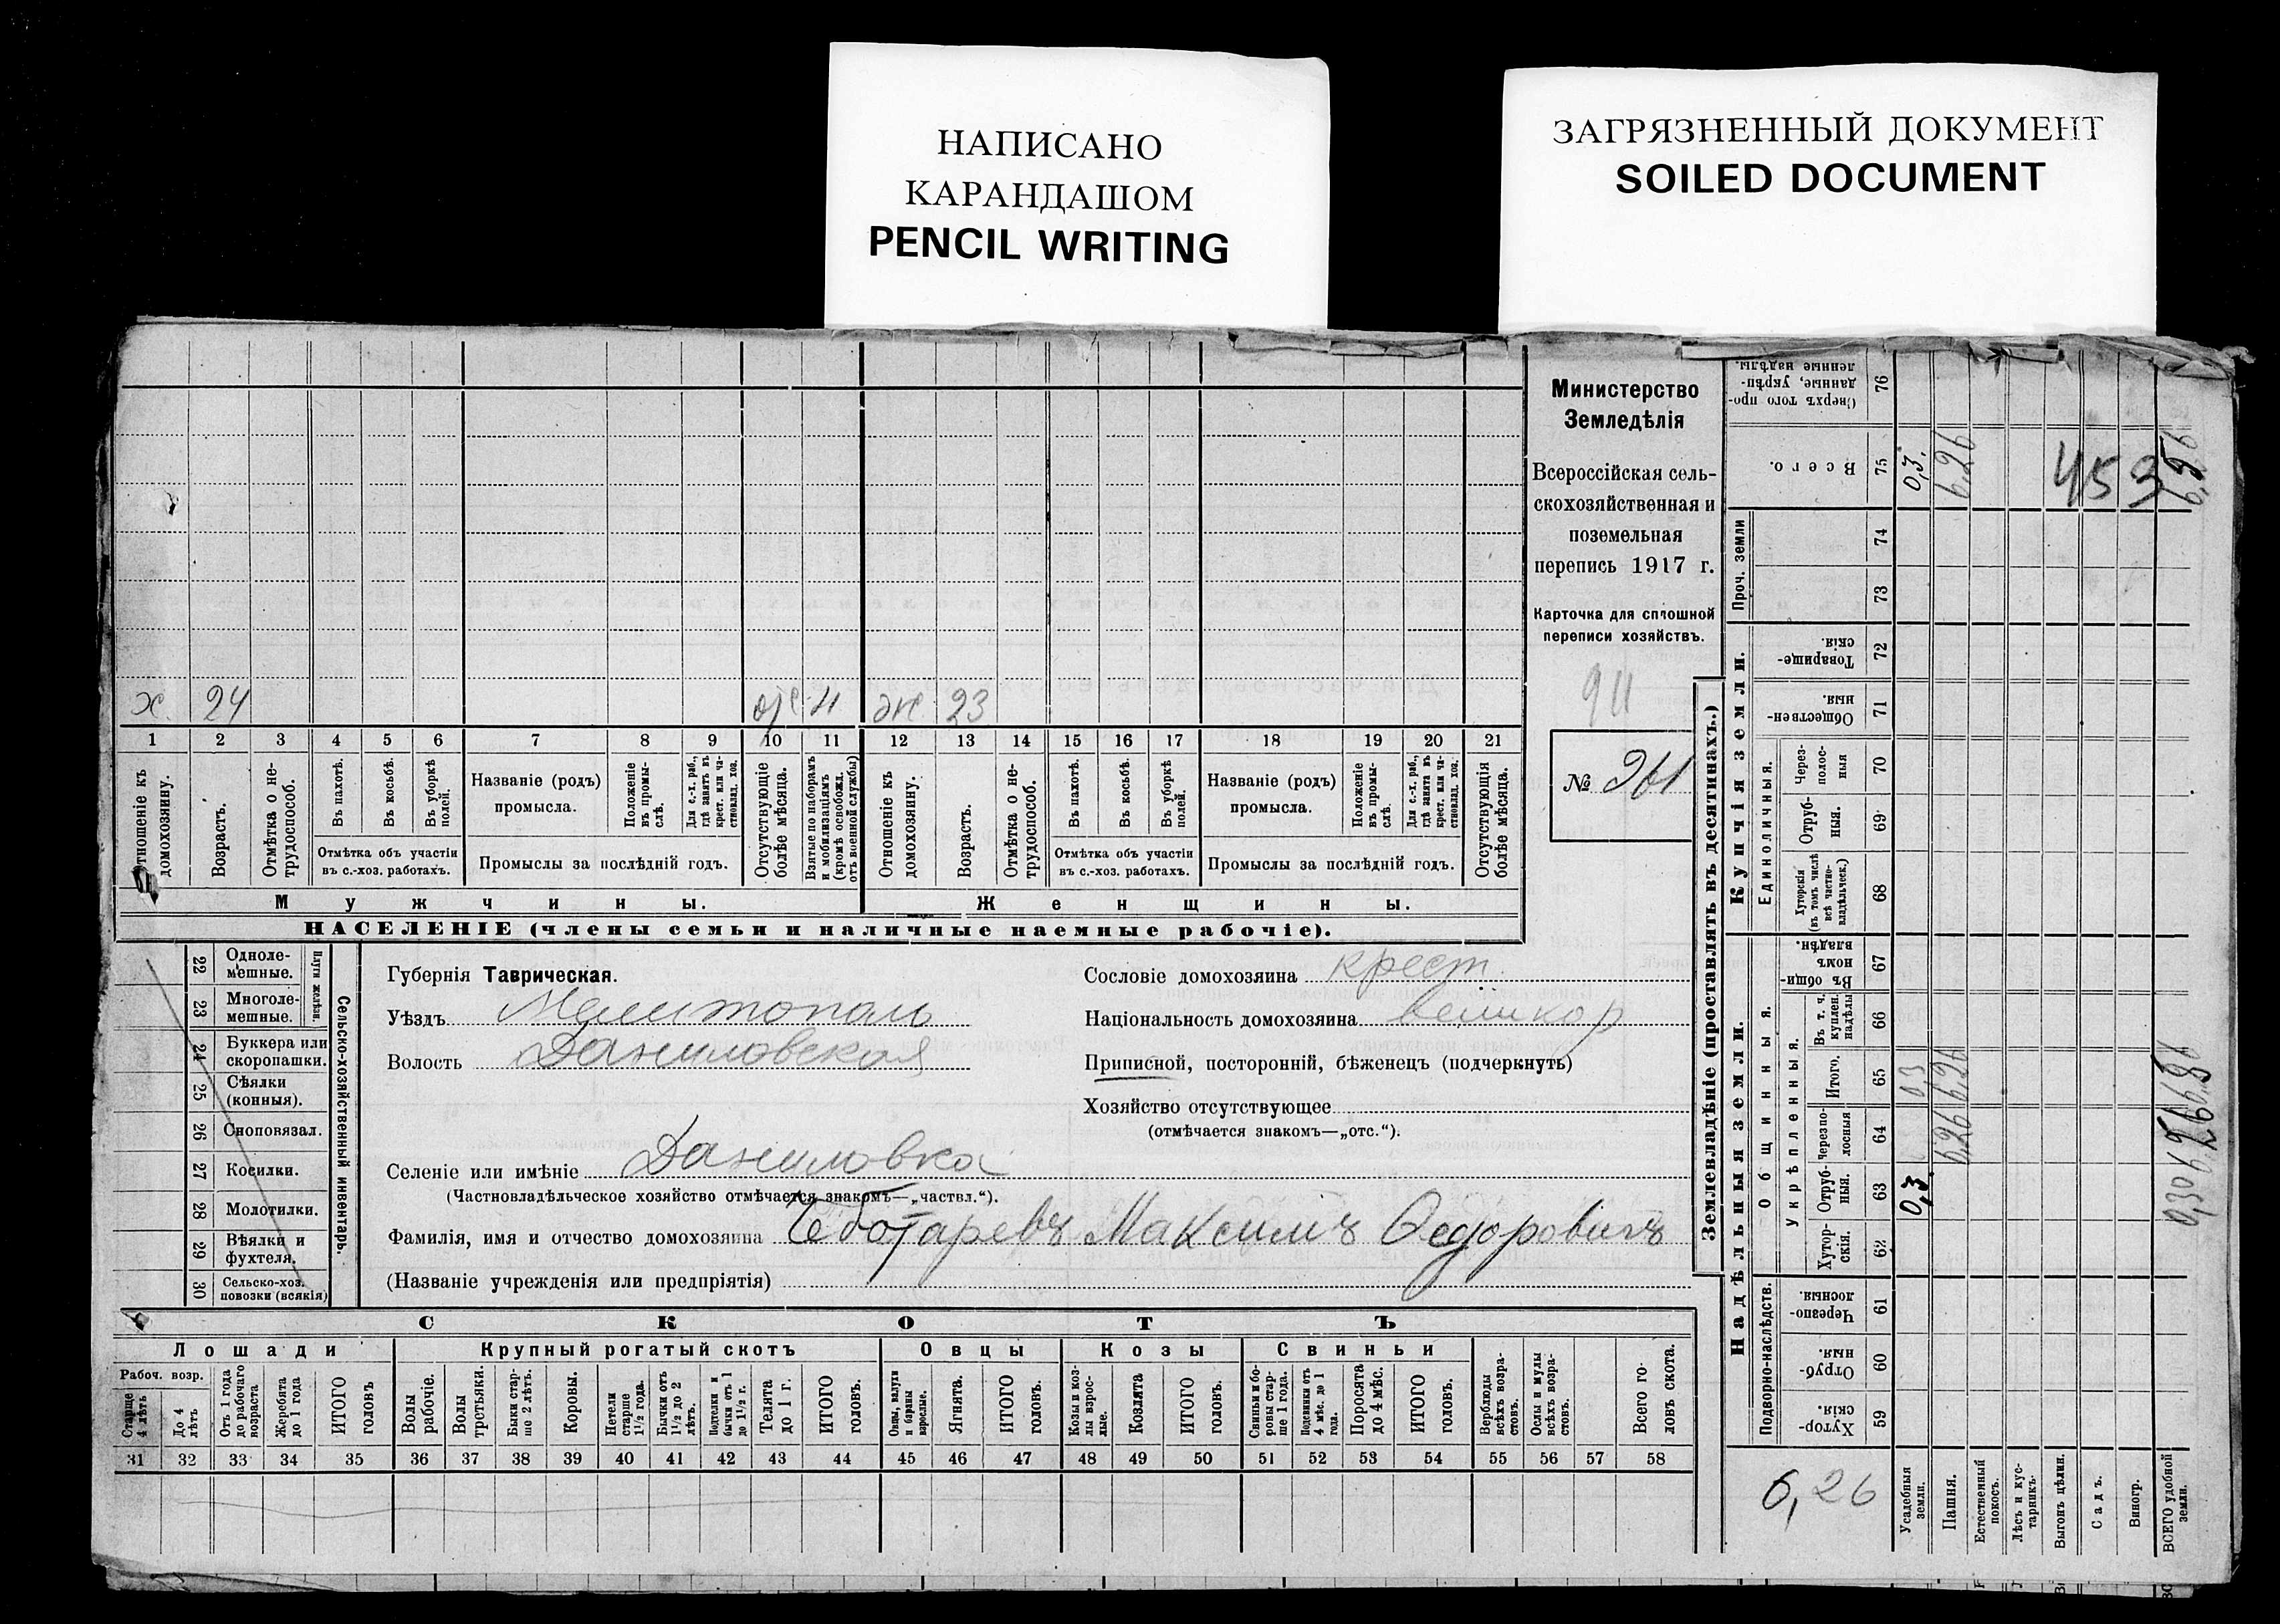 НАПИСАНО
КАРАНДАШОМ
PENCIL WRITING
ЗАГРЯЗНЕННЫЙ ДОКУМЕНТ
SOILED DOCUMENT
х. 24 отс. н жн 23
1 2 3 4 5 6 7 8 9 10 11 12 13 14 15 16 17 18 19 20 21
Отношеніе къ домохозяину.
Возрастъ.
Отмѣтка о не-трудоспособ.
Въ пахотѣ.
Въ косьбѣ.
Въ уборкѣ полей.
Отмѣтка объ участіи
въ с.-хоз. работахъ.
Названіе (родъ)
промысла.
Положеніе въ промы-слѣ.
Для с.-х. раб., гдѣ занятъ въ крест. или ча-стновлад. хоз.
Промыслы за послѣдній годъ.
Отсутствующіе болѣе мѣсяца.
Взятые по наборамъ и мобилизаціямъ (кромѣ освобожд. отъ военной службы)
Отношеніе къ домохозяину.
Возрастъ.
Отмѣтка о не-трудоспособ.
Въ пахотѣ.
Въ косьбѣ.
Въ уборкѣ полей.
Отмѣтка объ участіи
въ с.-хоз. работахъ.
Названіе (родъ)
промысла.
Положеніе въ промы-слѣ.
Для с.-х. раб., гдѣ занятъ въ крест. или ча-стновлад. хоз.
Промыслы за послѣдній годъ.
Отсутствующія болѣе мѣсяца.
Мужчины.
Женщины.
НАСЕЛЕНІЕ (члены семьи и наличные наемные рабочіе).
Министерство
Земледѣлія
Всероссійская сель-
скохозяйственная и
поземельная
перепись 1917 г.
Карточка для сплошной
переписи хозяйствъ.
№ 261
22 Однолемешные.
23 Многолемешные.
Плуги желѣзн.
24 Буккера или скоропашки.
25 Сѣялки (конныя).
26 Сноповязал.
27 Косилки.
28 Молотилки.
29 Вѣялки и фухтеля.
30 Сельско-хоз. повозки (всякія)
Сельско-хозяйственный инвентарь.
Губернія Таврическая.
Уѣздъ Мелитополь
Волость Даниловская
Селеніе или имѣніе Даниловка
(Частновладѣльческое хозяйство отмѣчается знакомъ—„частвл.“).
Фамилія, имя и отчество домохозяина Чеботаревъ Максимъ Федоровичъ
(Названіе учрежденія или предпріятія)
Сословіе домохозяина крест.
Національность домохозяина великор
Приписной, посторонній, бѣженец (подчеркнуть)
Хозяйство отсутствующее
(отмѣчается знакомъ—„отс.“).
СКОТЪ
Лошади Крупный рогатый скотъ Овцы Козы Свиньи
Рабоч. возр.
Старше 4 лѣтъ
До 4 лѣтъ
Отъ 1 года до рабочаго возраста
Жеребята до 1 года
ИТОГО головъ
Волы рабочіе.
Волы третьяки.
Быки стар-ше 2 лѣтъ.
Коровы.
Нетели старше 1½ года.
Бычки отъ 1½ до 2 лѣтъ.
Подтелки и бычки отъ 1 до 1½ г.
Телята до 1 г.
ИТОГО головъ.
Овцы, валухи и бараны взрослые.
Ягнята.
ИТОГО головъ.
Козы и коз-лы взрос-лые.
Козлята
ИТОГО головъ.
Свиньи и бо-ровы стар-ше 1 года.
Подсвинки отъ 4 мѣс. до 1 года.
Поросята до 4 мѣс.
ИТОГО головъ.
Верблюды всѣхъ возра-стовъ.
Ослы и мулы всѣхъ возра-стовъ.
Всего го-ловъ скота.
31 32 33 34 35 36 37 38 39 40 41 42 43 44 45 46 47 48 49 50 51 52 53 54 55 56 57 58
Землевладѣніе (проставлять въ десятинахъ.)
Сверхъ того про-данные, укрѣп-ленные надѣлы. 76
Всего. 75 0,3. 6,26 453
Проч. земли 74 73
Купчія земли.
Товарище-скія. 72
Обществен-ныя. 71
Единоличныя.
Через-полос-ныя 70
Отруб-ныя. 69
Хуторскія (въ томъ числѣ всѣ частно-владѣльческ.) 68
Надѣльныя земли.
Общинныя.
Въ общин-номъ владѣн. 67
Укрѣпленныя.
Въ т. ч. куплен. надѣлы 66
Итого. 65 0,3 6,26
Черезпо-лосныя 64 6,26
Отруб-ныя. 63 0,3.
Хутор-скія. 62
Подворно-наслѣдств.
Черезпо-лосныя 61
Отруб-ныя. 60
Хутор-скія. 59
6,26
Усадебныя земли.
Пашня.
Естественный покосъ.
Лѣсъ и кус-тарникъ.
Выгонъ цѣлин.
Садъ.
Виногр.
ВСЕГО удобной земли.